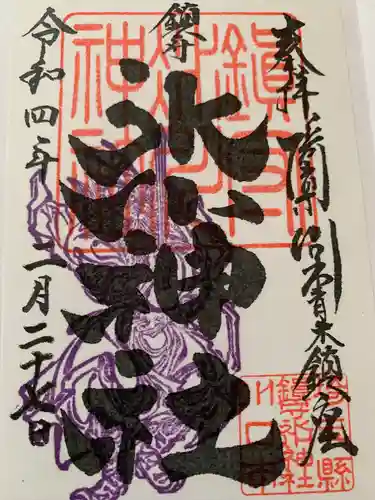 奉拝 青木鎮座
鎮守
氷川神社
令和四年二月二十七日
鎮守氷川神社
埼玉県
鎮守氷川神社
川口市